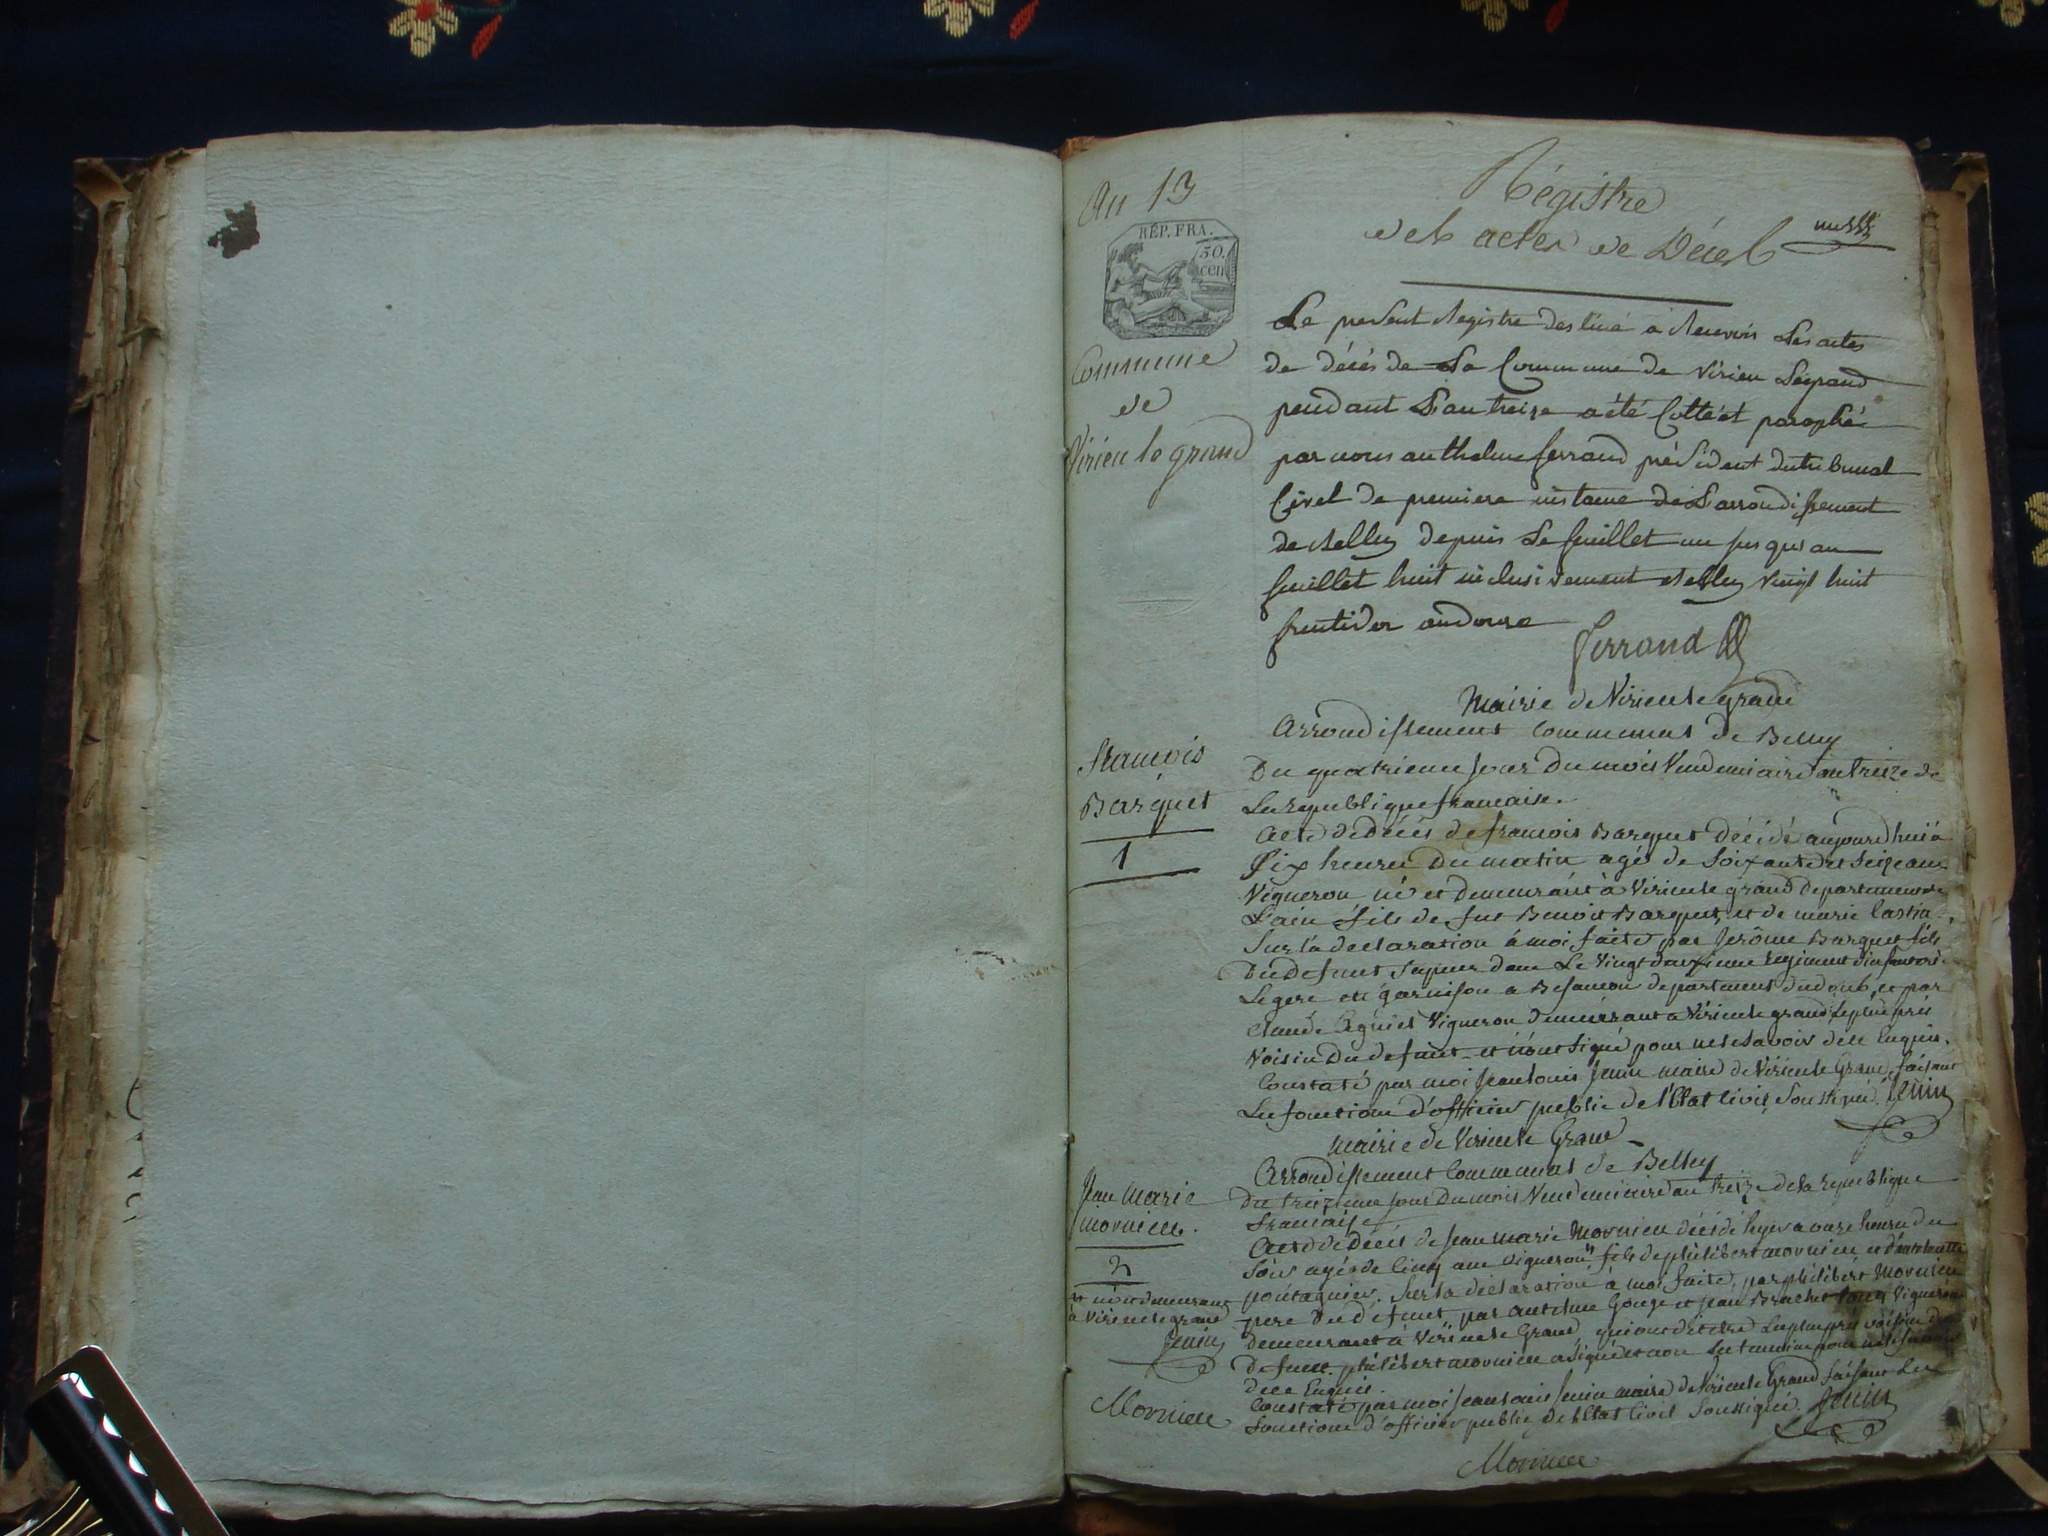 An 13
REP. FRA.
50.
cen
Commune
de
Virieu le grand
Régistre
des actes de Décès
Le present Registre destiné à Recevoir Les actes
de décès de La Commune de Virieu Legrand
pendant L'an treize a été Cotté et paraphé
par nous anthelme ferrand président du tribunal
Civil de premiere instance de L'arrondissement
de Belley depuis Le feuillet un jusqu'au
feuillet huit inclusivement Belley vingt huit
fructidor an douze
ferrand
Mairie de Virieu le grand
Arrondissement Communal de Belley
François
Barquet
1
Du quatrieme jour du mois Vendemiaire an treize de
La republique francaise.
Acte de décès de francois Barquet décédé aujourd'hui à
Six heures du matin agé de Soixante et Seize ans
Vigneron né et demeurant à Virieu le grand departement de
L'ain fils de feu Benoit Barquet, et de marie Castin
Sur la declaration à moi faite par Jerôme Barquet fils
Du Defunt Sapeur dans Le Vingt deuxieme regiment d'infanterie
Legere en garnison a Besancon departement du doub, et par
Claude Vigneron demeurant a Virieu le grand le plus près
Voisin du defunt et n'ont Signé pour ne le Savoir de ce Enquis.
Constaté par moi Jean Louis Jenin maire de Virieu le Grand, faisant
Les fonctions d'officier public de l'Etat Civil, Soussigné. Jenin
Mairie de Virieu le Grand
Arrondissement Communal de Belley
Jean Marie
mornieu.
2
et né et demeurant
à Virieu le grand
Jenin
Mornieu
Du treizieme jour du mois Vendemiaire an treize de la republique
francaise
Acte de décès de Jean Marie Mornieu décédé hyer a onze heures du
Soir agé de Cinq ans vigneron, fils de philibert mornieu et d'antoinette
, Sur la déclaration à moi faite, par philibert Mornieu
pere du défunt, par antelme Gouge et Jean Brachet tous Vignerons
demeurant à Virieu le Grand, qui ont dit être Les plus près voisins du
defunt. philibert mornieu a Signé et non Les temoins pour ne le Savoir
de ce Enquis.
Constaté par moi Jean Louis Jenin maire de Virieu le Grand faisant Les
fonctions d'officier public de l'Etat Civil Soussigné. Jenin
Mornieu